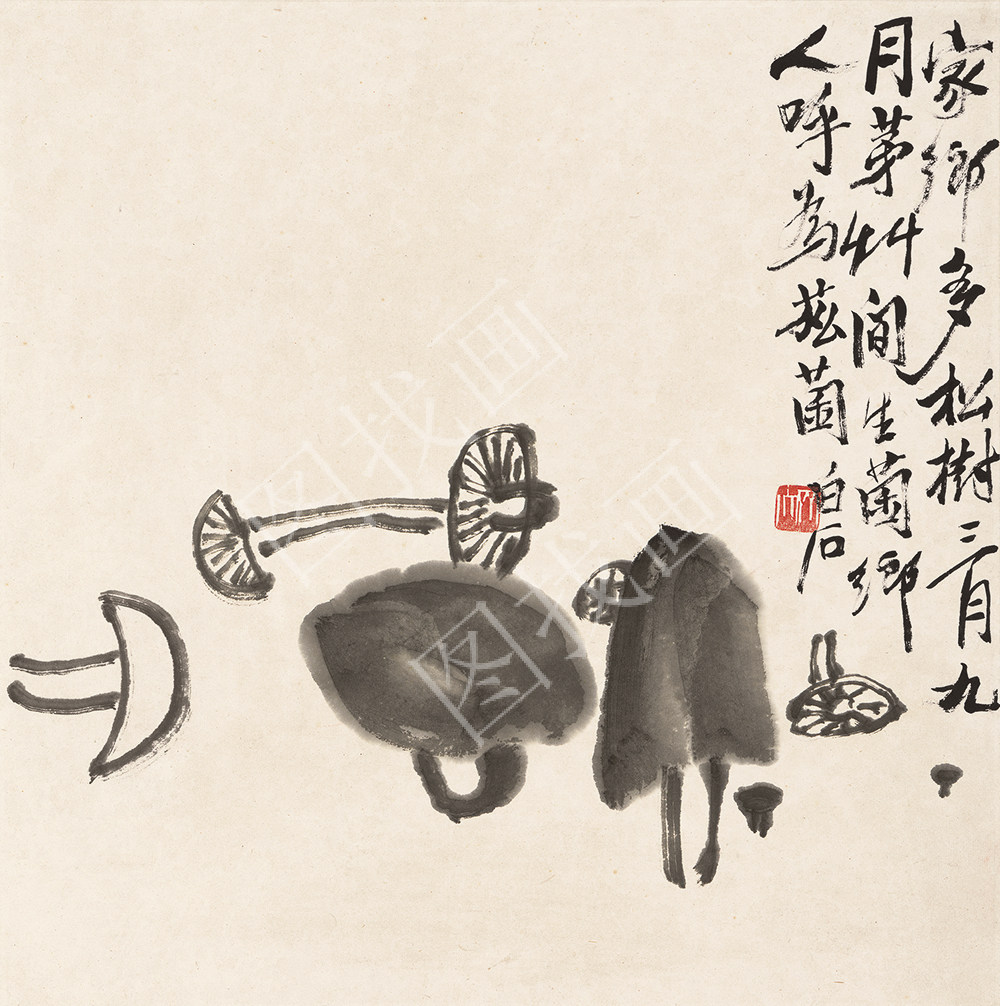 家鄉多松樹三月九
月茅艸間生菌鄉
人呼為菌
白石
图找画
图找画